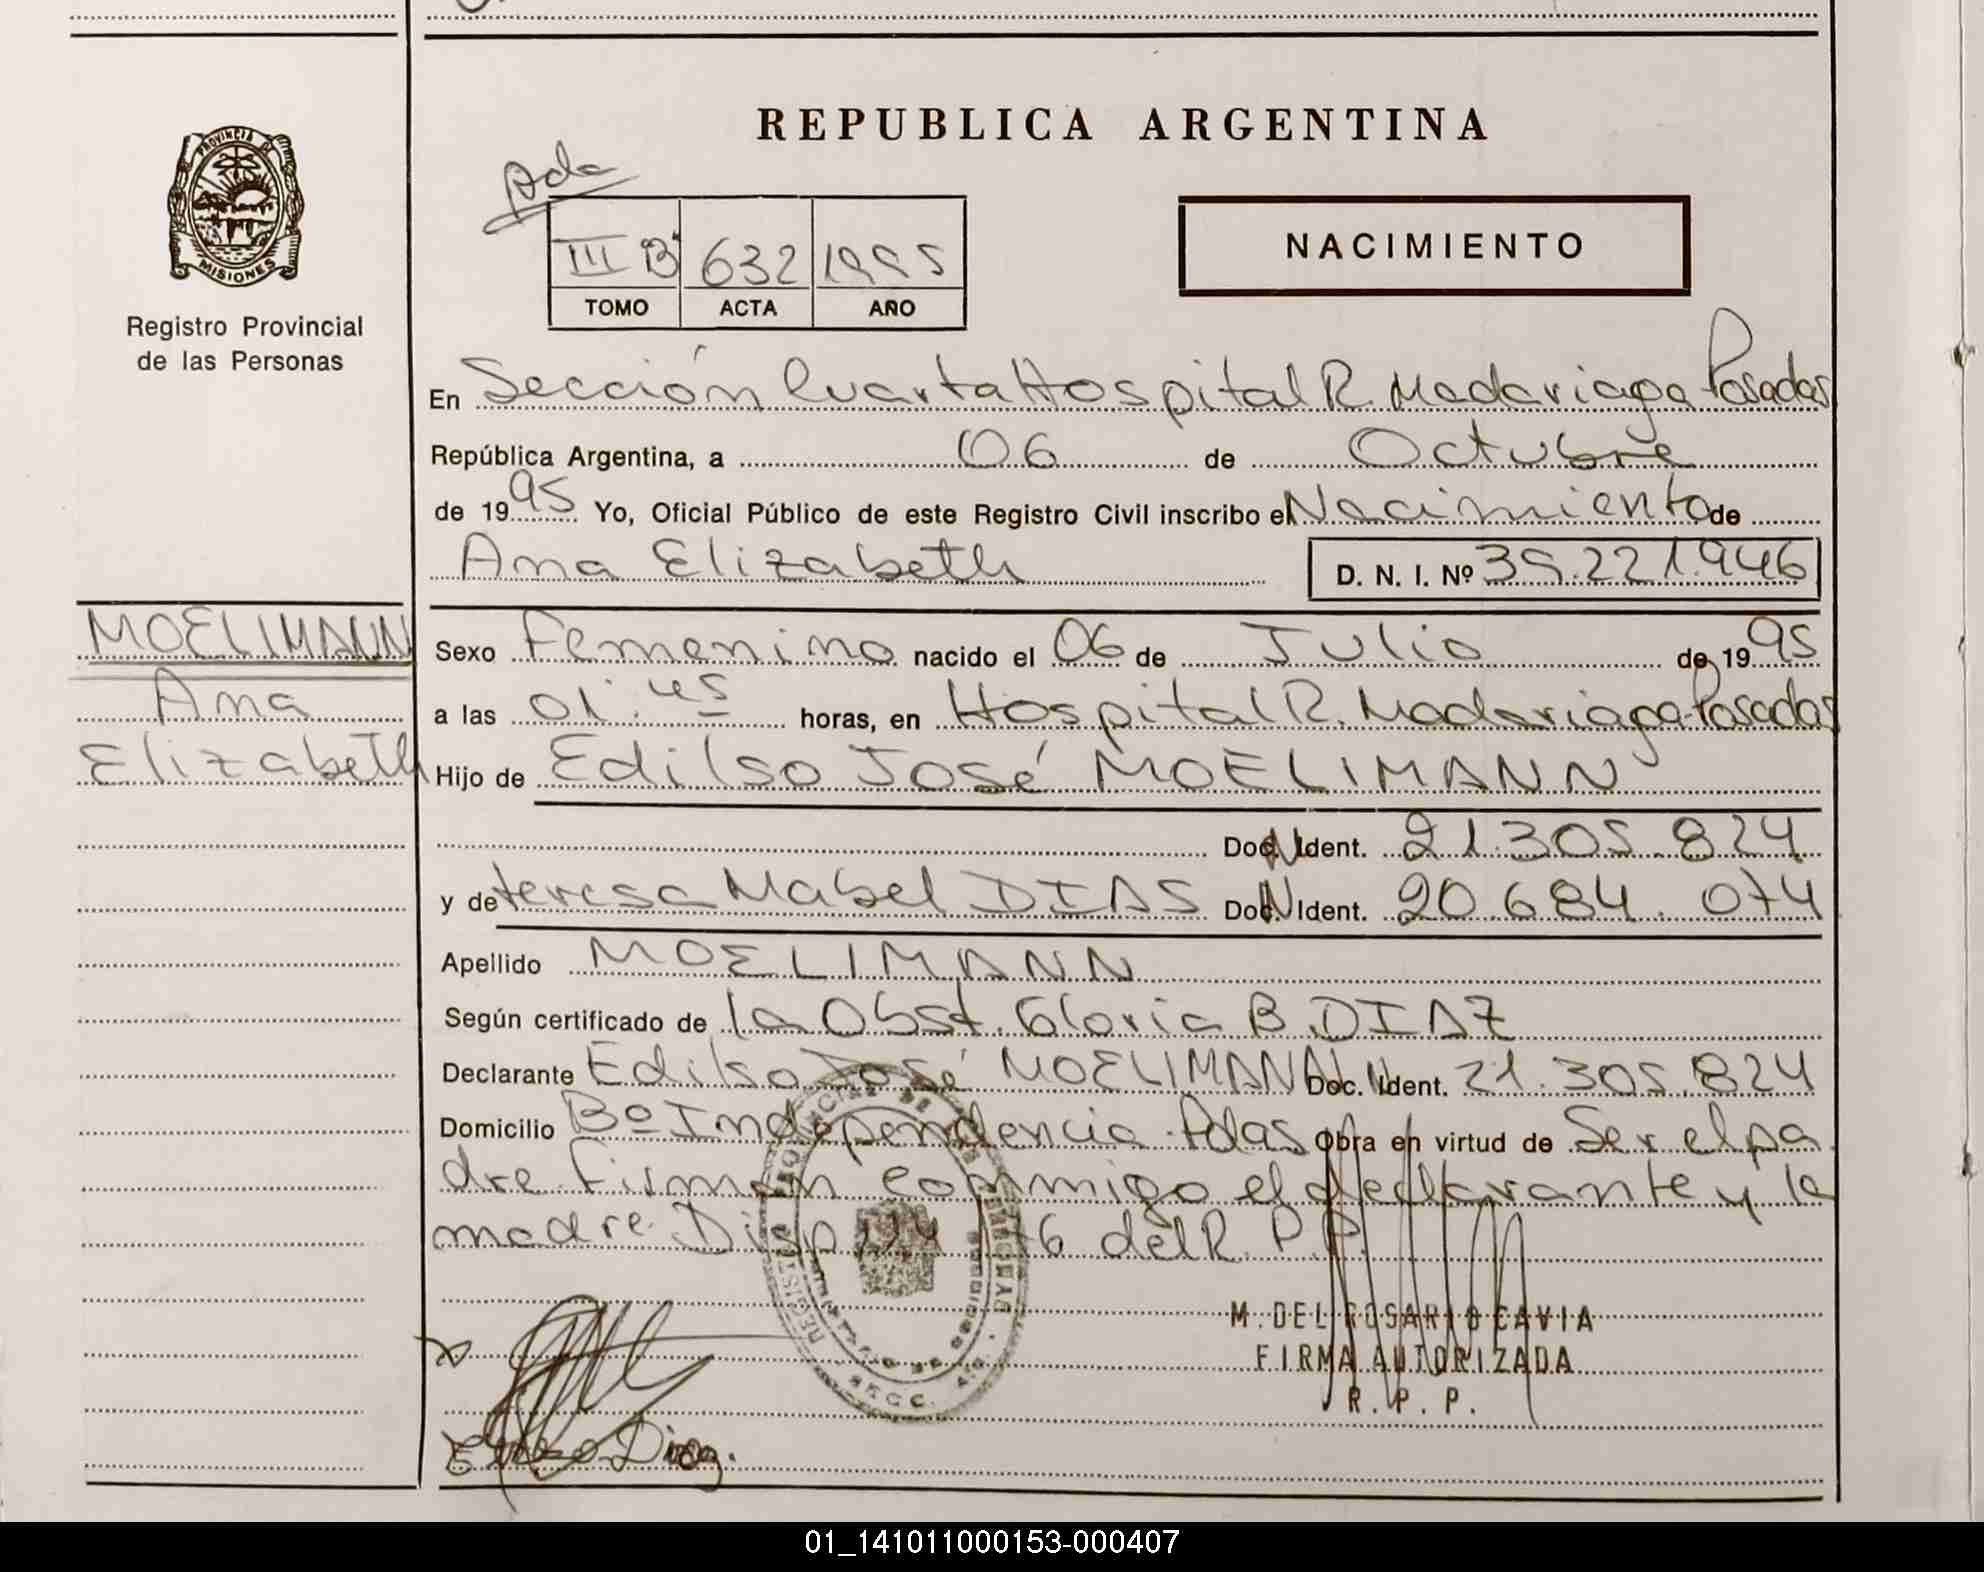 REPUBLICA ARGENTINA
PROVINCIA DE
MISIONES
Registro Provincial
de las Personas
III B 632 1995
TOMO ACTA AÑO
NACIMIENTO
En Sección Cuarta Hospital R. Madariaga Posadas
República Argentina, a 06 de Octubre
de 1995 Yo, Oficial Público de este Registro Civil inscribo el Nacimiento de
Ana Elizabeth D. N. I. Nº 39.221.946
MOELIMANN
Ana
Elizabeth
Sexo Femenino nacido el 06 de Julio de 1995
a las 01:45 horas, en Hospital R. Madariaga Posadas
Hijo de Edilso José MOELIMANN
Doc. Ident. 21.305.824
y de teresa Mabel DIAS Doc. Ident. 20.684.074
Apellido MOELIMANN
Según certificado de la Obst. Gloria B. DIAZ
Declarante Edilso José MOELIMANN Doc. Ident. 21.305.824
Domicilio Bº Independencia Pdas Obra en virtud de Ser el pa
dre. Firman conmigo el declarante y la
madre. Disp 76 del R. P. P.
M. DEL ROSARIO CAVIA
FIRMA AUTORIZADA
R. P. P.
01_141011000153-000407